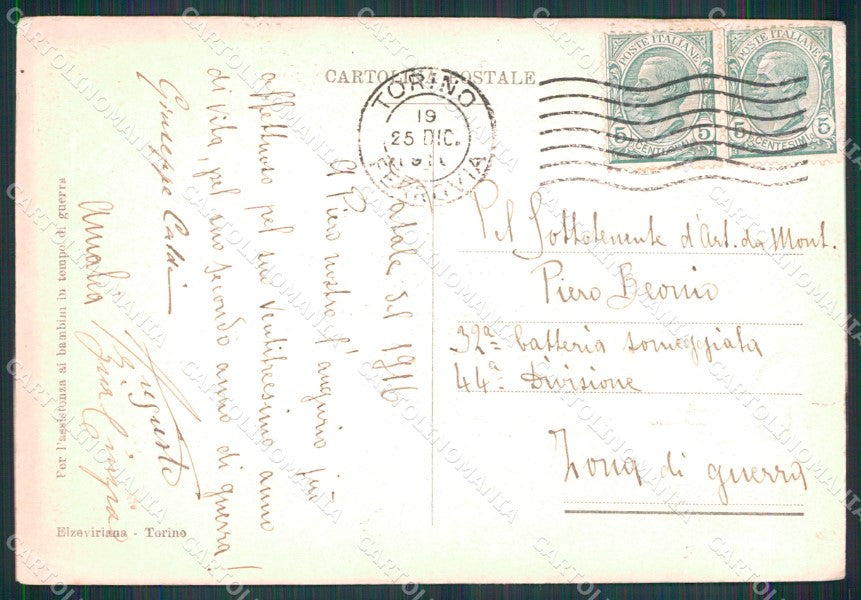 CARTOLINA POSTALE
POSTE ITALIANE
5 5
CENTESIMI
POSTE ITALIANE
5 5
CENTESIMI
TORINO
19
25 DIC.
FERROVIA
Natale del 1916
A Piero nostro l'augurio più
affettuoso pel suo ventitreesimo anno
di vita, pel suo secondo anno di guerra!
Giuseppe
Amalia
Pel Sottotenente d'Art. da Mont.
Piero Beonio
32ª batteria someggiata
44ª Divisione
Zona di guerra
Per l'assistenza ai bambini in tempo di guerra
Elzeviriana - Torino
CARTOLINOMANIA